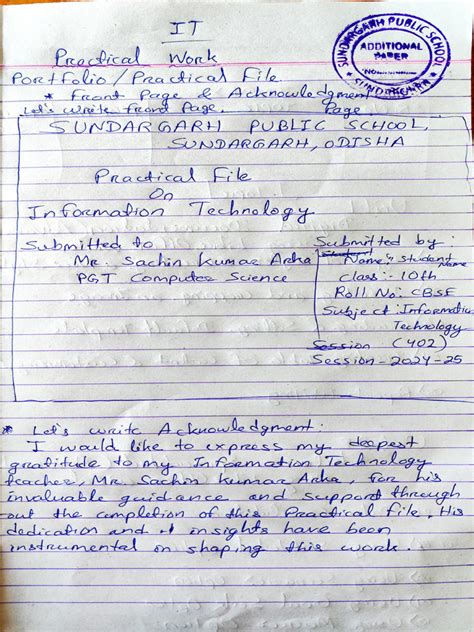 IT
SUNDARGARH PUBLIC SCHOOL
ADDITIONAL
PAPER
SUNDARGARH
Practical Work
Portfolio / Practical File
* Front Page & Acknowledgment
Let's write front Page. Page.
SUNDARGARH PUBLIC SCHOOL,
SUNDARGARH, ODISHA
Practical File
On
Information Technology
Submitted to
Mr. Sachin Kumar Arha
PGT Computer Science
Submitted by:
Name:- Student Name
Class:- 10th
Roll No: CBSE
Subject: Information
Technology
(402)
Session
Session - 2024-25
* Let's write Acknowledgment:
I would like to express my deepest
gratitude to my Information Technology
teacher, Mr. Sachin Kumar Arha, for his
invaluable guidance and support through
out the completion of this Practical file. His
dedication and insights have been
instrumental in shaping this work.